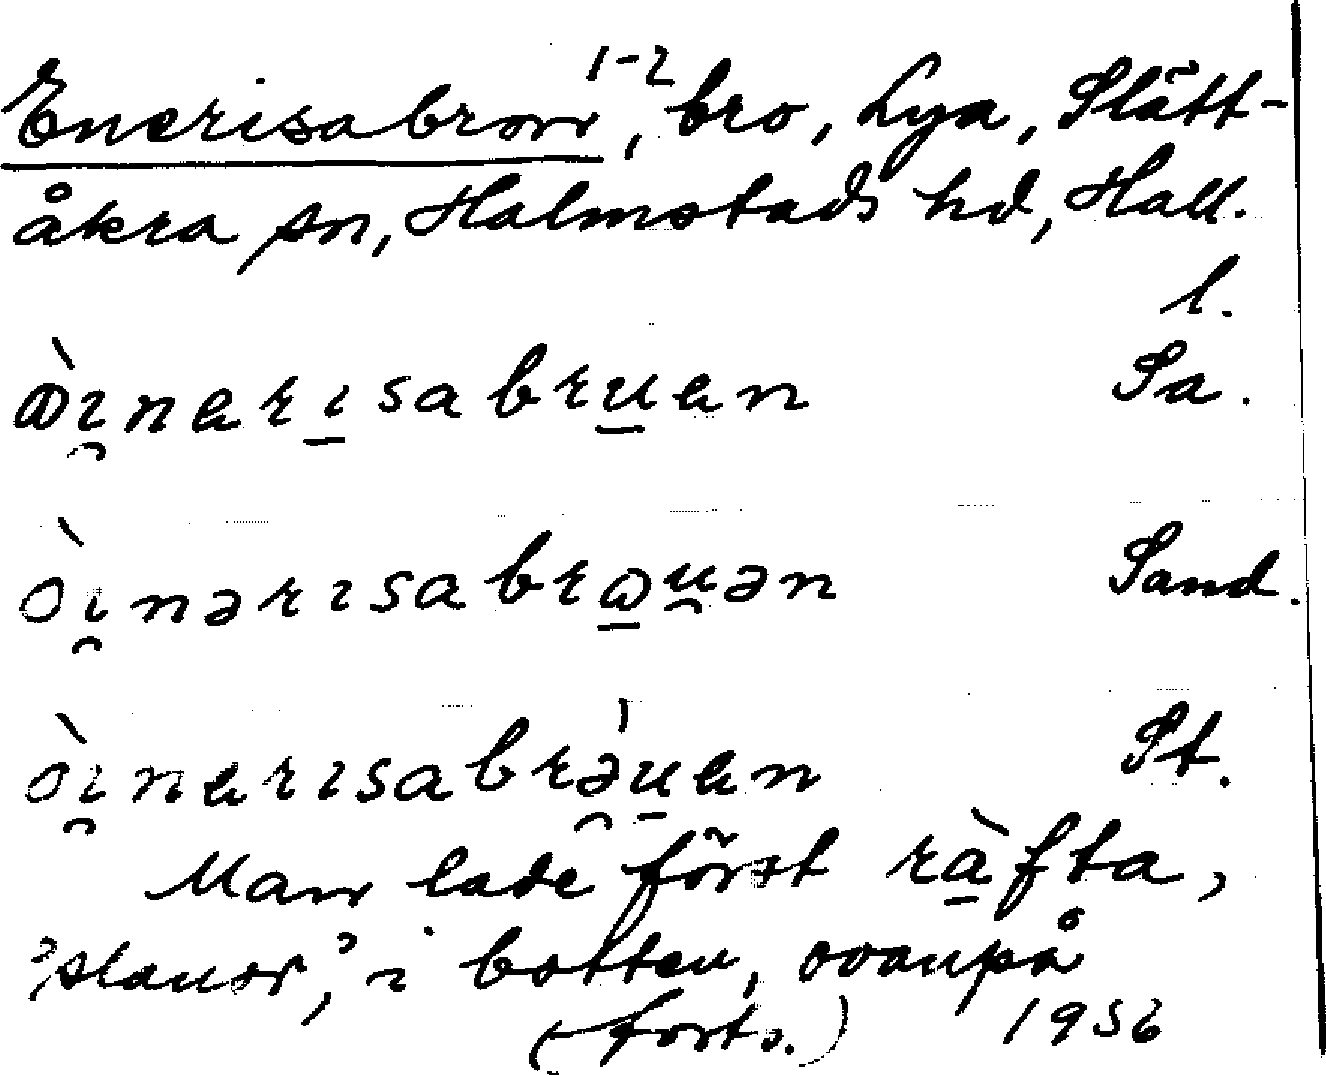 Enerisabron¹⁻², bro, Lya, Slätt-
åkra sn, Halmstads hd, Hall.
l.
ɷ̀ı̯narı̱sabru̱an Sa.
òı̯nərısabrɷ̱u̯ən Sand.
òı̯narısabrə̯̀u̱an St.
Man lade först rà̱fta,
'slanor,' i botten, ovanpå
(forts.) 1956